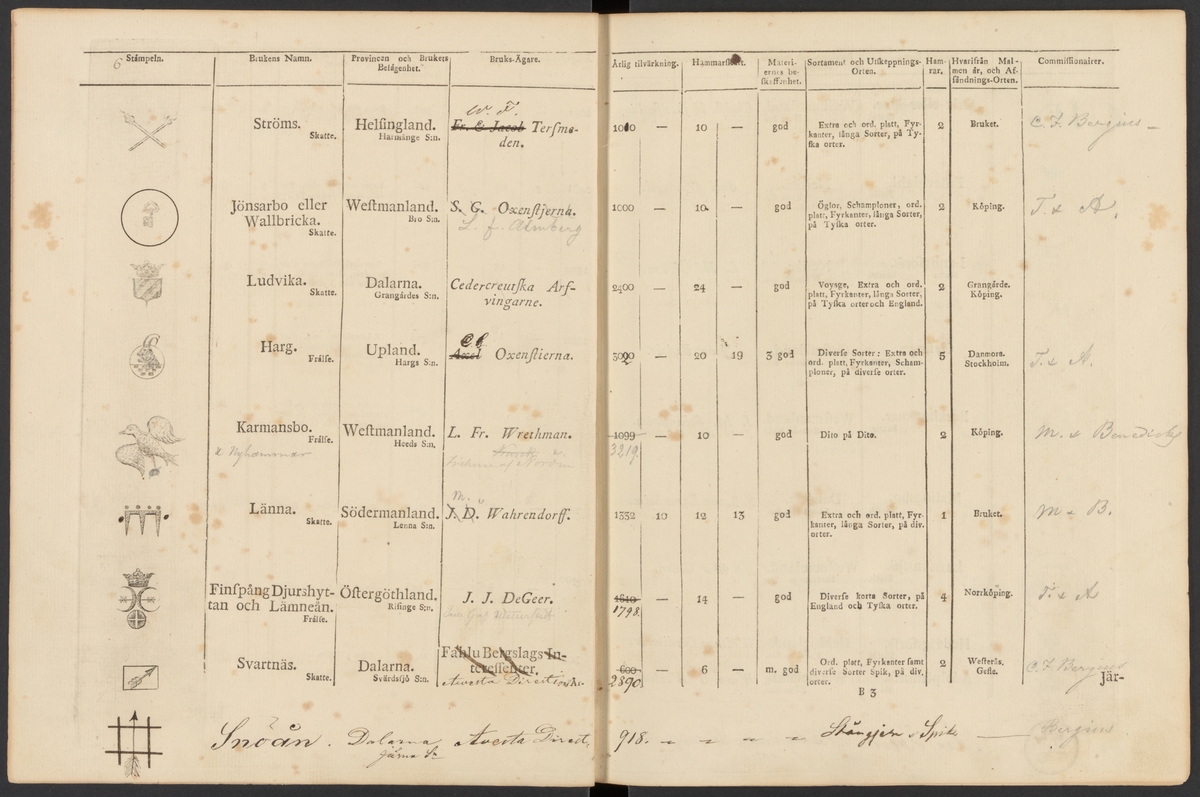 6
Stämpeln.
Brukens Namn.
Provincen och Brukets
Belägenhet.
Bruks-Ägare.
Årlig tilvärkning.
Hammarskatt.
Materi-
ernas be-
skaffenhet.
Sortament och Utskeppnings-
Orten.
Ham-
rar.
Hvarifrån Mal-
men är, och Af-
sändnings-Orten.
Commissionairer.
Ströms.
Skatte.
Helsingland.
Harmånge S:n.
W. F.
Fr. & Jacob Tersme-
den.
1010 — 10 — god
Extra och ord. platt, Fyr-
kanter, långa Sorter, på Ty-
ska orter.
2
Bruket.
C. F. Bergius —
Jönsarbo eller
Wallbricka.
Skatte.
Westmanland.
Bro S:n.
S. G. Oxenstjerna.
L. f. Almberg
1000 — 10 — god
Öglor, Schamploner, ord.
platt, Fyrkanter, långa Sorter,
på Tyska orter.
2
Köping.
T. & A.
Ludvika.
Skatte.
Dalarna.
Grangärdes S:n.
Cedercreutska Arf-
vingarne.
2400 — 24 — god
Voyage, Extra och ord.
platt, Fyrkanter, långa Sorter,
på Tyska orter och England.
2
Grangärde.
Köping.
Harg.
Frälse.
Upland.
Hargs S:n.
Axel Oxenstierna.
3020 — 20 19 3 god
Diverse Sorter: Extra och
ord. platt, Fyrkanter, Scham-
ploner, på diverse orter.
5
Danmora.
Stockholm.
T. & A.
Karmansbo.
Frälse.
& Nyhammar
Westmanland.
Heeds S:n.
L. Fr. Wrethman.
1099 — 10 — god
3219.
Dito på Dito.
2
Köping.
M. & Benedicks
Länna.
Skatte.
Södermanland.
Lenna S:n.
M.
J. D. Wahrendorff.
1332 10 12 13 god
Extra och ord. platt, Fyr-
kanter, långa Sorter, på div.
orter.
1
Bruket.
M & B.
Finspång Djurshyt-
tan och Lämneån.
Frälse.
Östergöthland.
Risinge S:n.
J. J. DeGeer.
1640 — 14 — god
1798.
Diverse korta Sorter, på
England och Tyska orter.
4
Norrköping.
T. & A
Svartnäs.
Skatte.
Dalarna.
Svärdsjö S:n.
Fahlu Bergslags In-
teressenter.
Avesta Direction
600 — 6 — m. god
2890.
Ord. platt, Fyrkanter samt
diverse Sorter Spik, på div.
orter.
2
Westerås.
Gefle.
C. F. Bergius
B 3
Jär-
Snöån. Dalarna Avesta Direct. 918. Stångjern & Spik — Bergius
Järna Sn